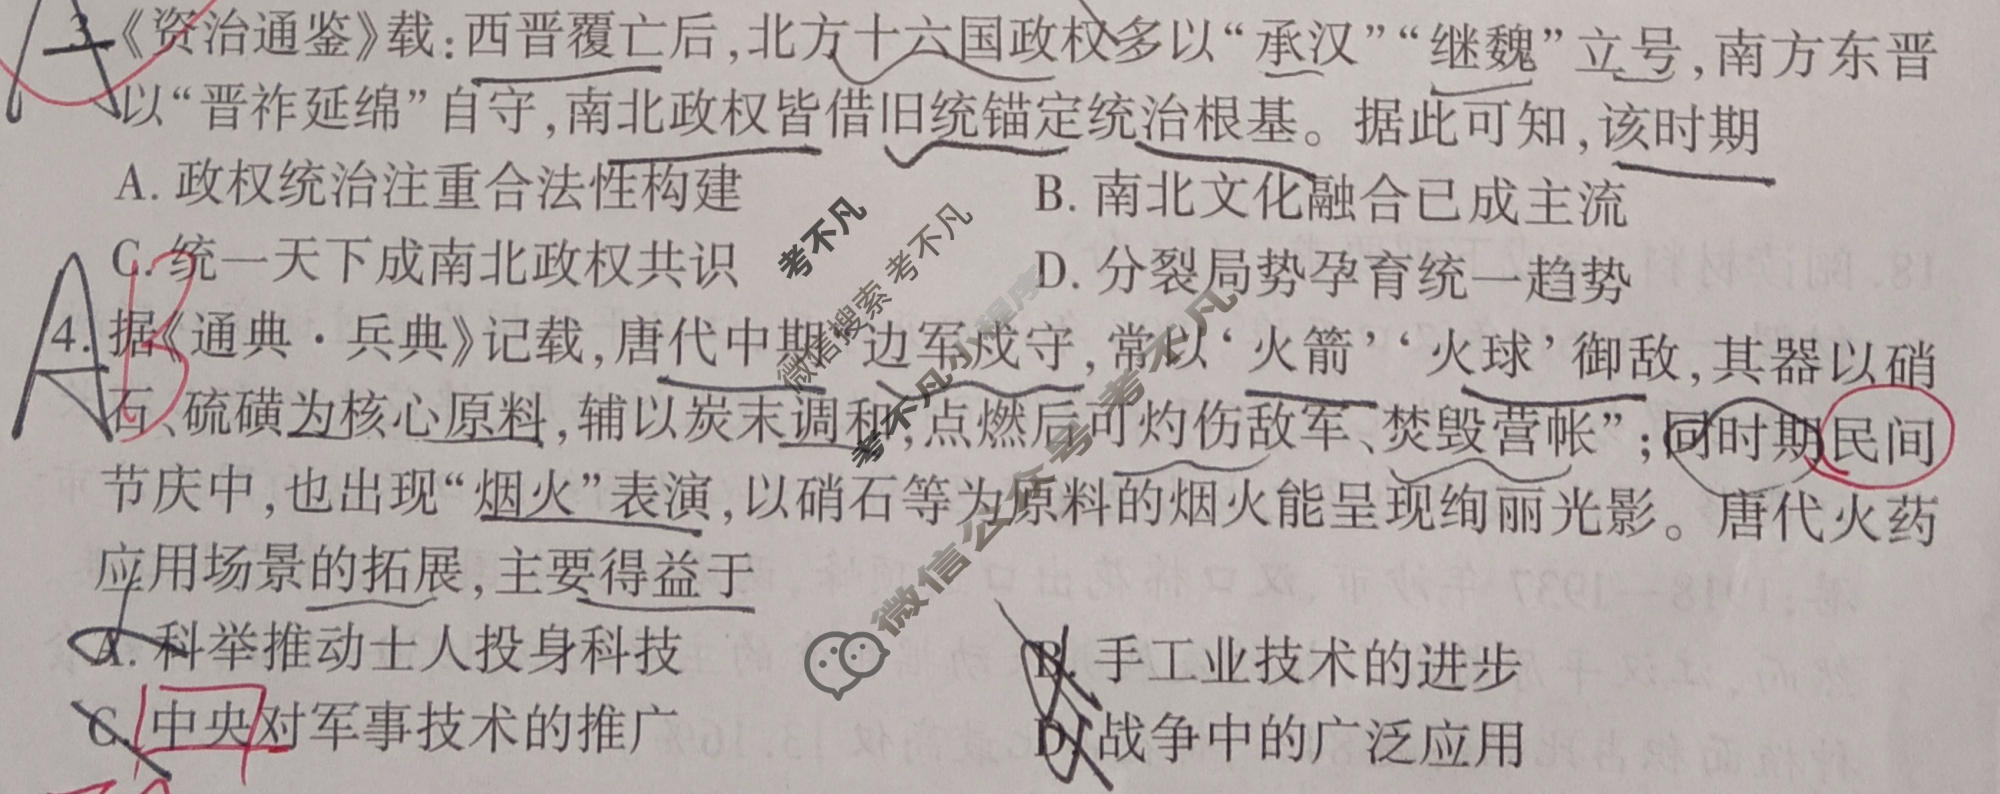 3.《资治通鉴》载:西晋覆亡后,北方十六国政权多以“承汉”“继魏”立号,南方东晋
以“晋祚延绵”自守,南北政权皆借旧统锚定统治根基。据此可知,该时期
A. 政权统治注重合法性构建
B. 南北文化融合已成主流
C. 统一天下成南北政权共识
D. 分裂局势孕育统一趋势
A
4. 据《通典·兵典》记载,唐代中期“边军戍守,常以‘火箭’‘火球’御敌,其器以硝
石、硫磺为核心原料,辅以炭末调和,点燃后可灼伤敌军、焚毁营帐”;同时期民间
节庆中,也出现“烟火”表演,以硝石等为原料的烟火能呈现绚丽光影。唐代火药
应用场景的拓展,主要得益于
A B
A. 科举推动士人投身科技
B. 手工业技术的进步
C. 中央对军事技术的推广
D. 战争中的广泛应用
考不凡
微信搜索 考不凡
考不凡小程序
微信公众号 考不凡